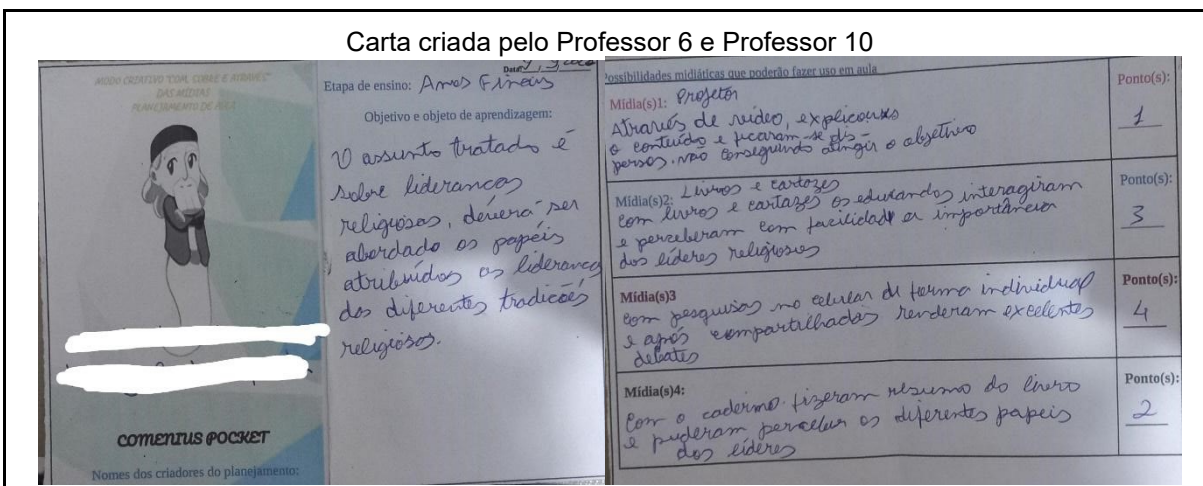 Carta criada pelo Professor 6 e Professor 10
MODO CRIATIVO "COM, SOBRE E ATRAVÉS"
DAS MÍDIAS
PLANEJAMENTO DE AULA
COMENIUS POCKET
Nomes dos criadores do planejamento:
Data:
Etapa de ensino: Anos Finais
Objetivo e objeto de aprendizagem:
O assunto tratado é
sobre lideranças
religiosas, deverá ser
abordado os papéis
atribuídos as liderança
das diferentes tradições
religiosos.
Possibilidades midiáticas que poderão fazer uso em aula
Ponto(s):
Mídia(s)1: Projetor
Através de vídeo,
o conteúdo e ficaram-se dis-
persos, não conseguindo atingir o objetivo
1
Mídia(s)2: Livros e cartazes
Ponto(s):
com livros e cartazes os educandos interagiram
e perceberam com facilidade a importância
dos líderes religiosos
3
Mídia(s)3
Ponto(s):
com pesquisas no celular de forma individual
e após compartilhadas renderam excelentes
debates
4
Mídia(s)4:
Ponto(s):
Com o caderno fizeram resumo do livro
e puderam perceber os diferentes papeis
dos líderes
2